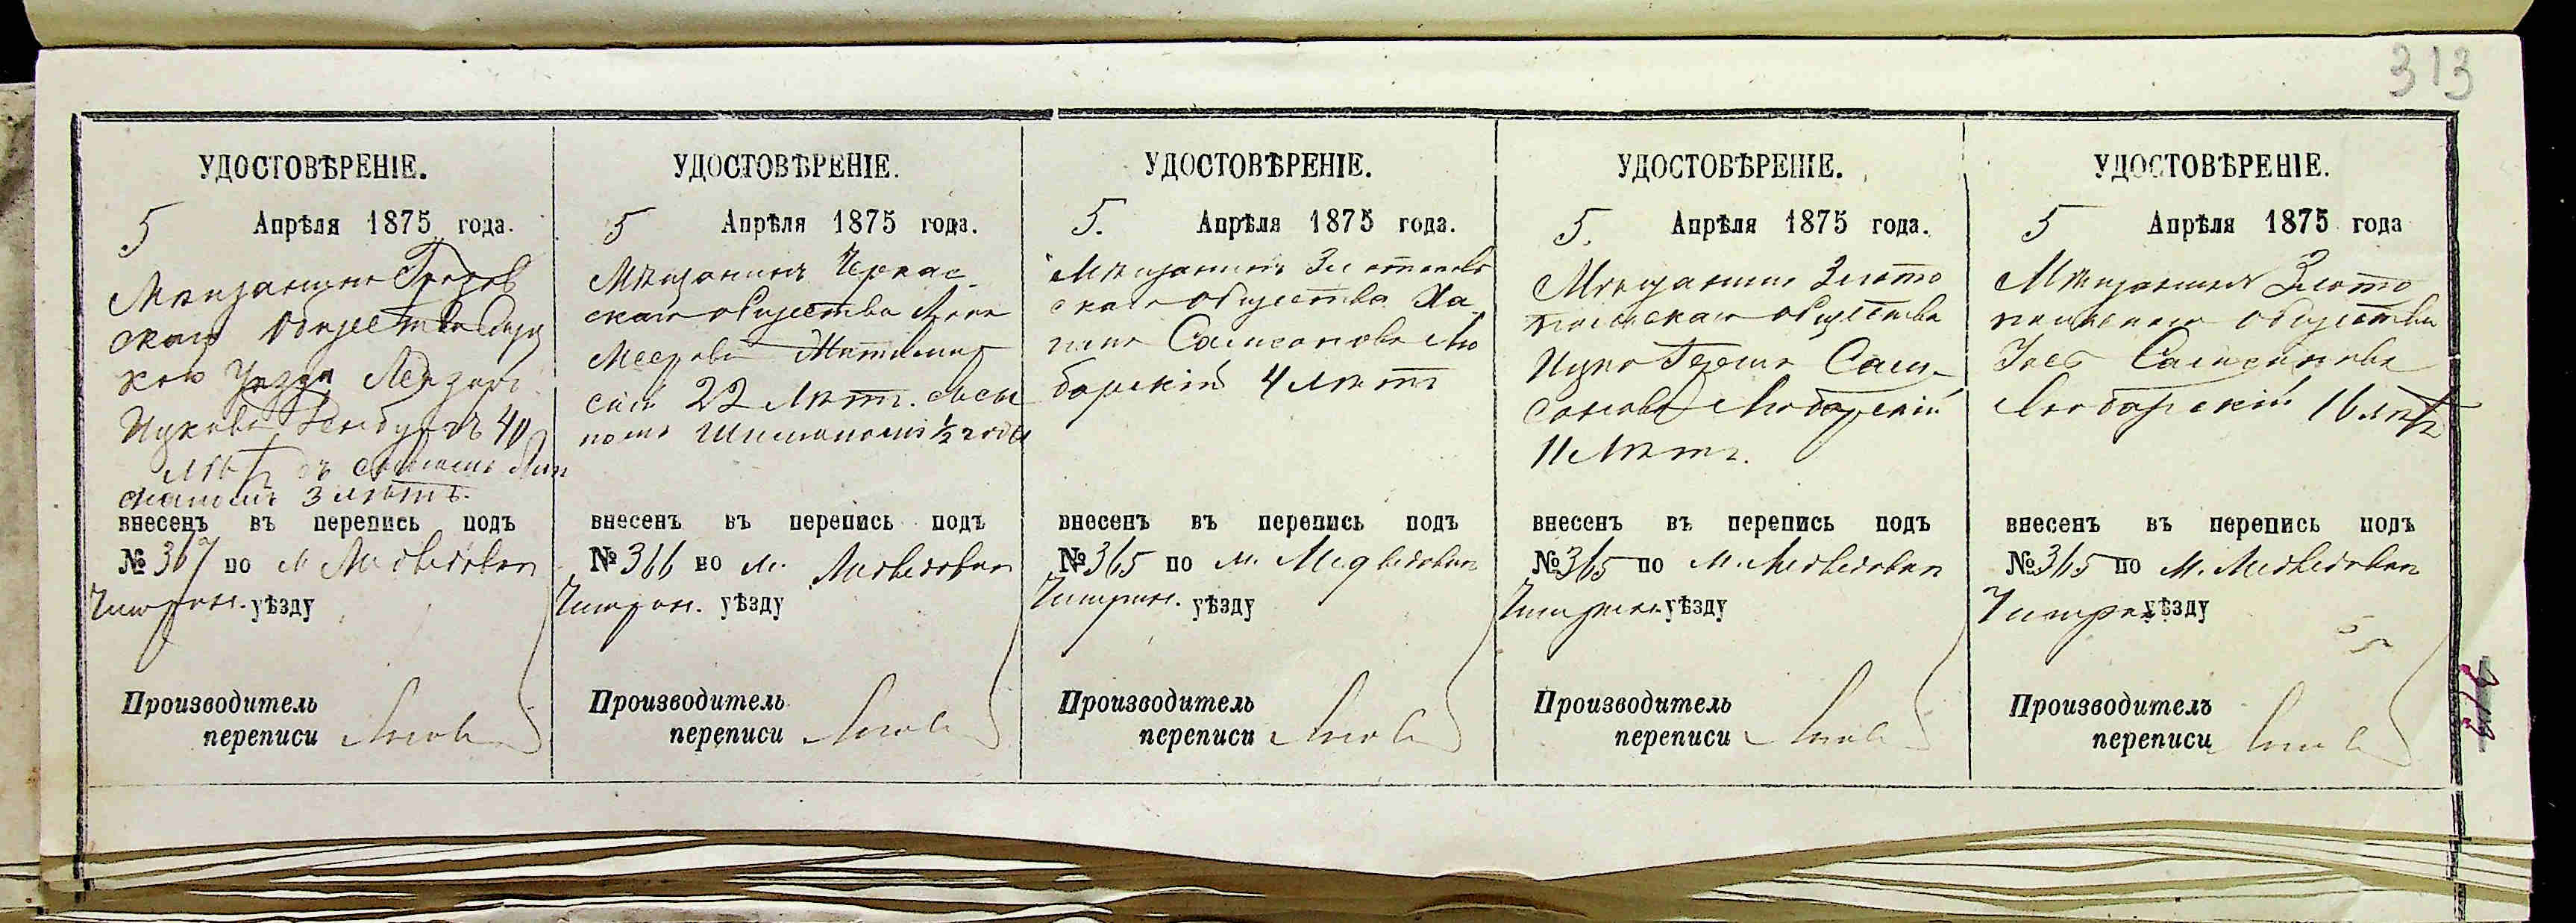 313
УДОСТОВѢРЕНІЕ.
5 Апрѣля 1875 года.
Мѣщанинъ
скаго общества
кого уѣзда
Ицковъ 40
лѣтъ съ сыномъ
3 лѣтъ.
внесенъ въ перепись подъ
№ 367 по м. Медведовки
Чигирин. уѣзду
Производитель
переписи
УДОСТОВѢРЕНІЕ.
5 Апрѣля 1875 года.
Мѣщанинъ Черкас
скаго общества
Мееровъ
22 лѣтъ. съ сы
номъ Шимономъ ½ года
внесенъ въ перепись подъ
№ 366 по м. Медведовки
Чигирин. уѣзду
Производитель
переписи
УДОСТОВѢРЕНІЕ.
5. Апрѣля 1875 года.
Мѣщанинъ Златополь
скаго общества Ха
Самсоновъ Лю
барскій 4 лѣтъ
внесенъ въ перепись подъ
№ 365 по м. Медведовки
Чигирин. уѣзду
Производитель
переписи
УДОСТОВѢРЕНІЕ.
5. Апрѣля 1875 года.
Мѣщанинъ Злато
польскаго общества
Ицко Гершъ Сам-
соновъ Любарскій
11 лѣтъ.
внесенъ въ перепись подъ
№ 365 по м. Медведовки
Чигирин. уѣзду
Производитель
переписи
УДОСТОВѢРЕНІЕ.
5 Апрѣля 1875 года
Мѣщанинъ Злато
польскаго общества
Самсоновъ
Любарскій 16 лѣтъ
внесенъ въ перепись подъ
№ 365 по м. Медведовки
Чигирин уѣзду
Производитель
переписи